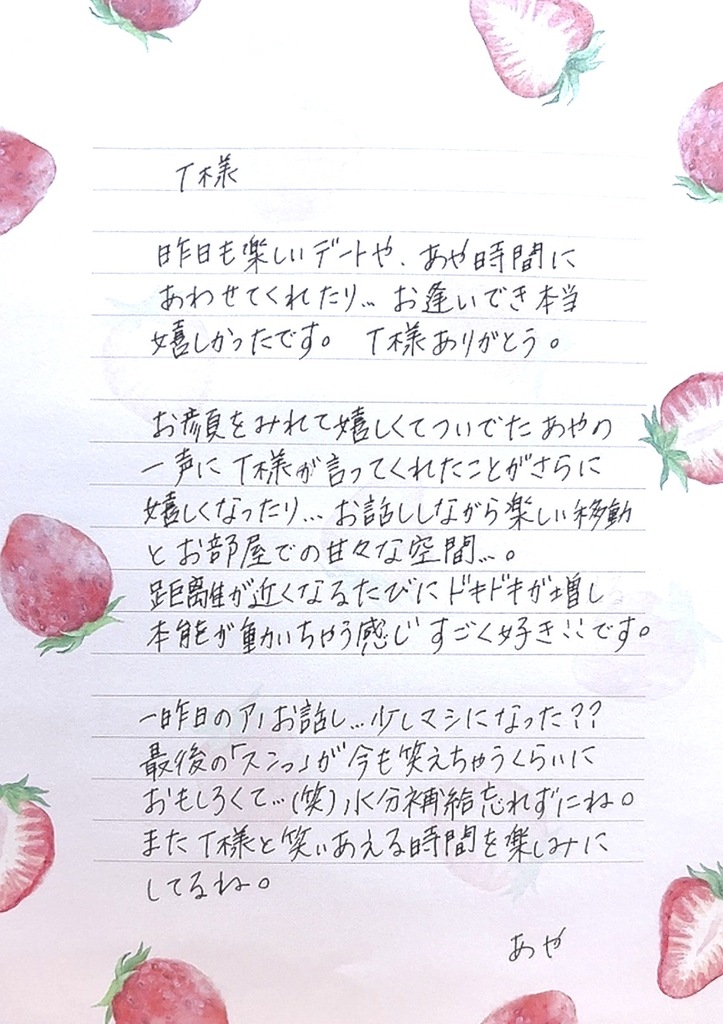 T様
昨日も楽しいデートや、あや時間に
あわせてくれたり… お逢いでき本当
嬉しかったです。 T様ありがとう。
お顔をみれて嬉しくてついでたあやの
一声に T様が言ってくれたことがさらに
嬉しくなったり… お話ししながら楽しい移動
とお部屋での甘々な空間…。
距離が近くなるたびにドキドキが増し
本能が動いちゃう感じすごく好き!!です。
一昨日のアノお話し…少しマシになった??
最後の「スンっ」が今も笑えちゃうくらいに
おもしろくて…(笑)水分補給忘れずにね。
また T様と笑いあえる時間を楽しみに
してるね。
あや